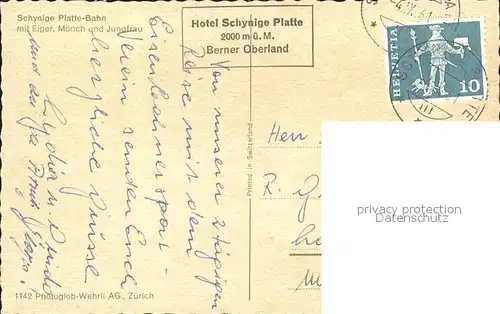 Schynige Platte-Bahn
mit Eiger, Mönch und Jungfrau
Hotel Schynige Platte
2000 m ü. M.
Berner Oberland
Von unserer 2 tägigen
Reise mit dem
Eisenbahnersport-
verein senden Euch
herzliche Grüsse
Lydia u. Guido
und
1142 Photoglob-Wehrli AG., Zürich
Printed in Switzerland
HELVETIA
10
IX. 61
Herr
R. G
privacy protection
datenschutz